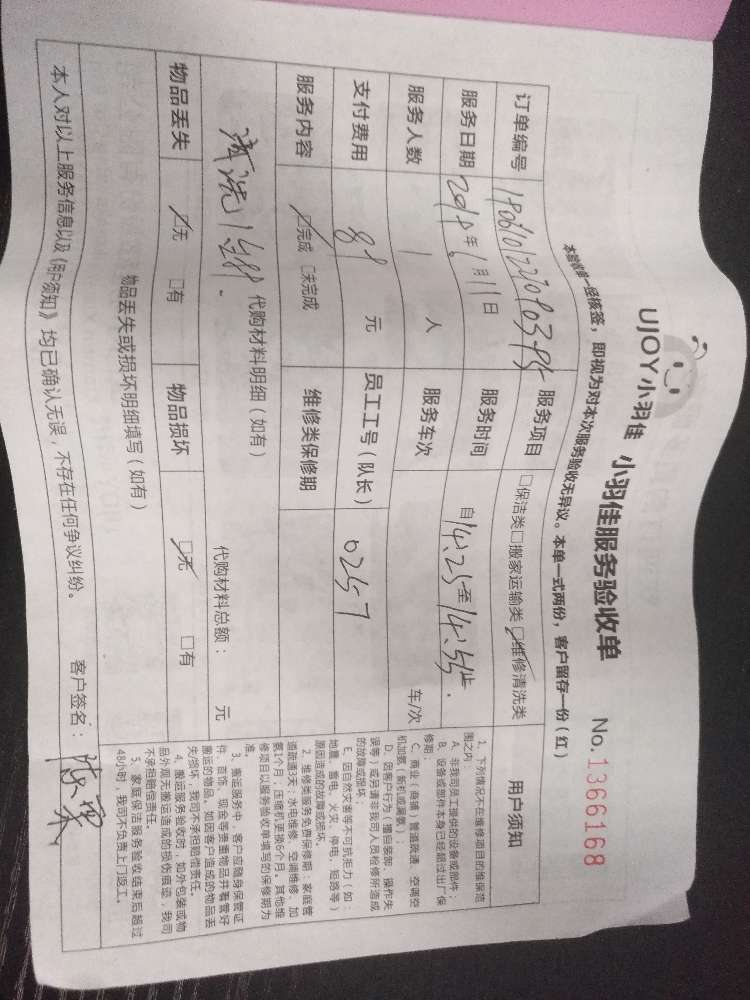 UJOY小羽佳 小羽佳服务验收单 No.1366168
本验收单一经核签，即视为对本次服务验收无异议。本单一式两份，客户留存一份（红）
订单编号 服务项目 □保洁类□搬家运输类☑维修清洗类
服务日期 2018年 月11日 服务时间 自14:25至14:55止.
服务人数 1 人 服务车次 车/次
支付费用 元 员工工号（队长） 0257
服务内容 ☑完成 □未完成 维修类保修期
代购材料明细（如有） 代购材料总额： 元
清洗1台
物品丢失 ☑无 □有 物品损坏 ☑无 □有
物品丢失或损坏明细填写（如有）
本人对以上服务信息以及《用户须知》均已确认无误，不存在任何争议纠纷。 客户签名：
用户须知
1、下列情况不在维修项目的维保范
围之内：
A、非我司员工提供的设备或部件；
B、设备或部件本身已经超过出厂保
修期；
C、商业（商铺）管道疏通、空调空
机加氨、新机或漏氨；
D、因客户行为（擅自装卸、操作失
误等）或另请非我司人员检修所造成
的故障或损坏；
E、因自然灾害等不可抗拒力（如：
地震、雷电、火灾、停电、短路等）
原因造成的故障或损坏。
2、维修类服务免费保修期：家庭管
道疏通3天；水电维修、空调维修、加
氨1个月，压缩机更换6个月，其他维
修项目以服务验收单填写的保修期为
准。
3、搬运服务中，客户应随身保管证
件、首饰、现金等贵重物品并看管好
搬运的物品。如因客户造成的物品丢
失/损坏，我司不承担赔偿责任。
4、搬运服务验收时，如外包装或物
品外观无搬运造成的损伤痕迹，我司
不承担赔偿责任。
5、家庭保洁服务验收结束后超过
48小时，我司不负责上门返工。